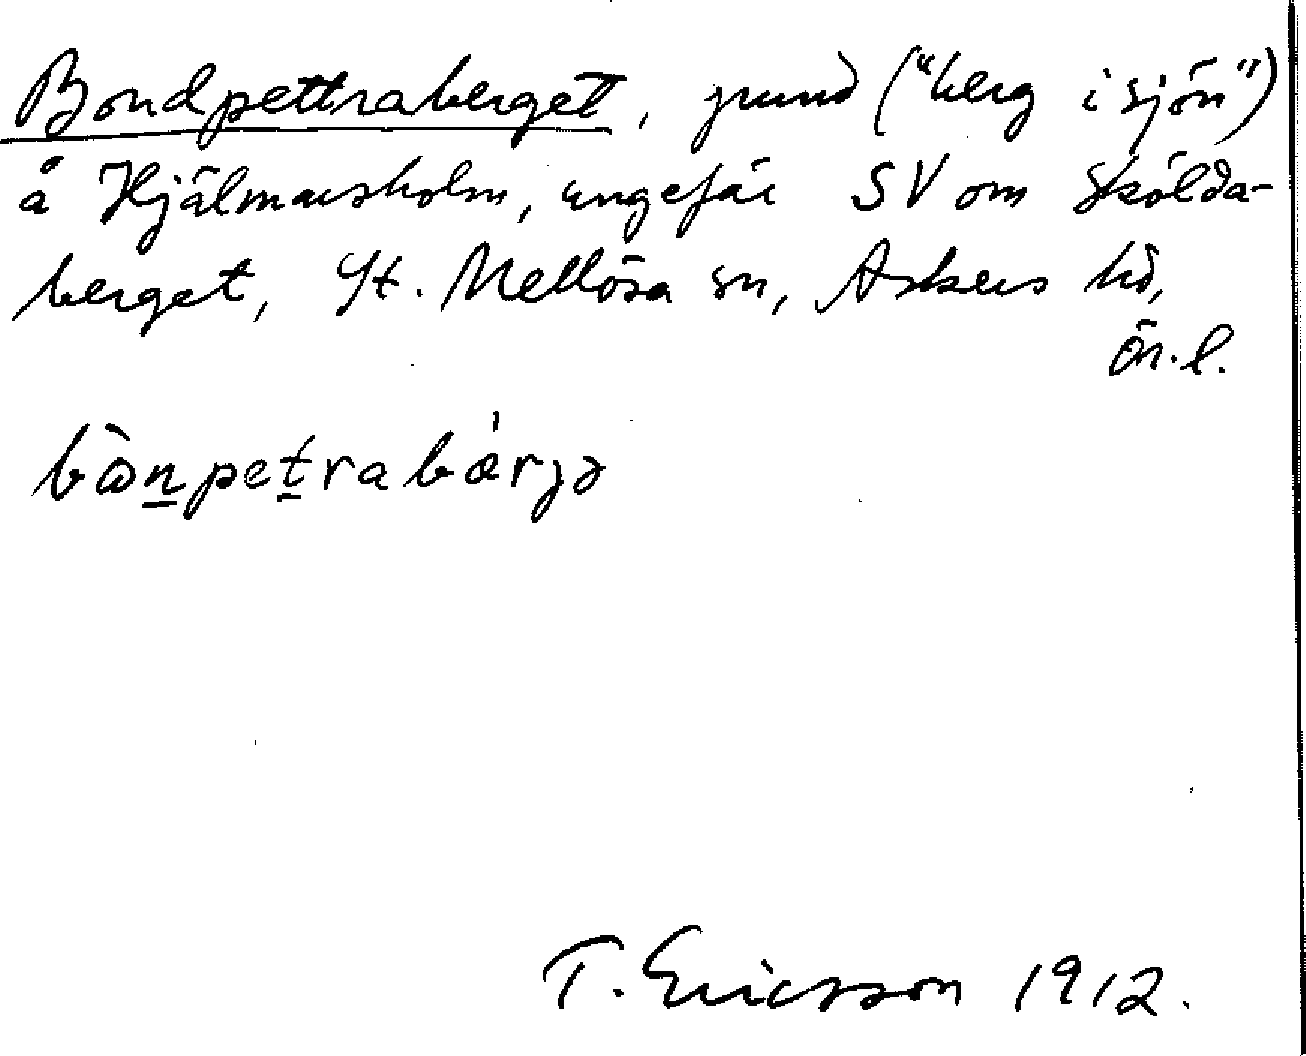 Bondpettraberget, grund ("berg i sjön")
å Hjälmarsholm, ungefär SV om Skölda-
berget, St. Mellösa sn, Askers hd,
Ör. l.
bὼn̲pet̲rabárjə
T. Ericsson 1912.